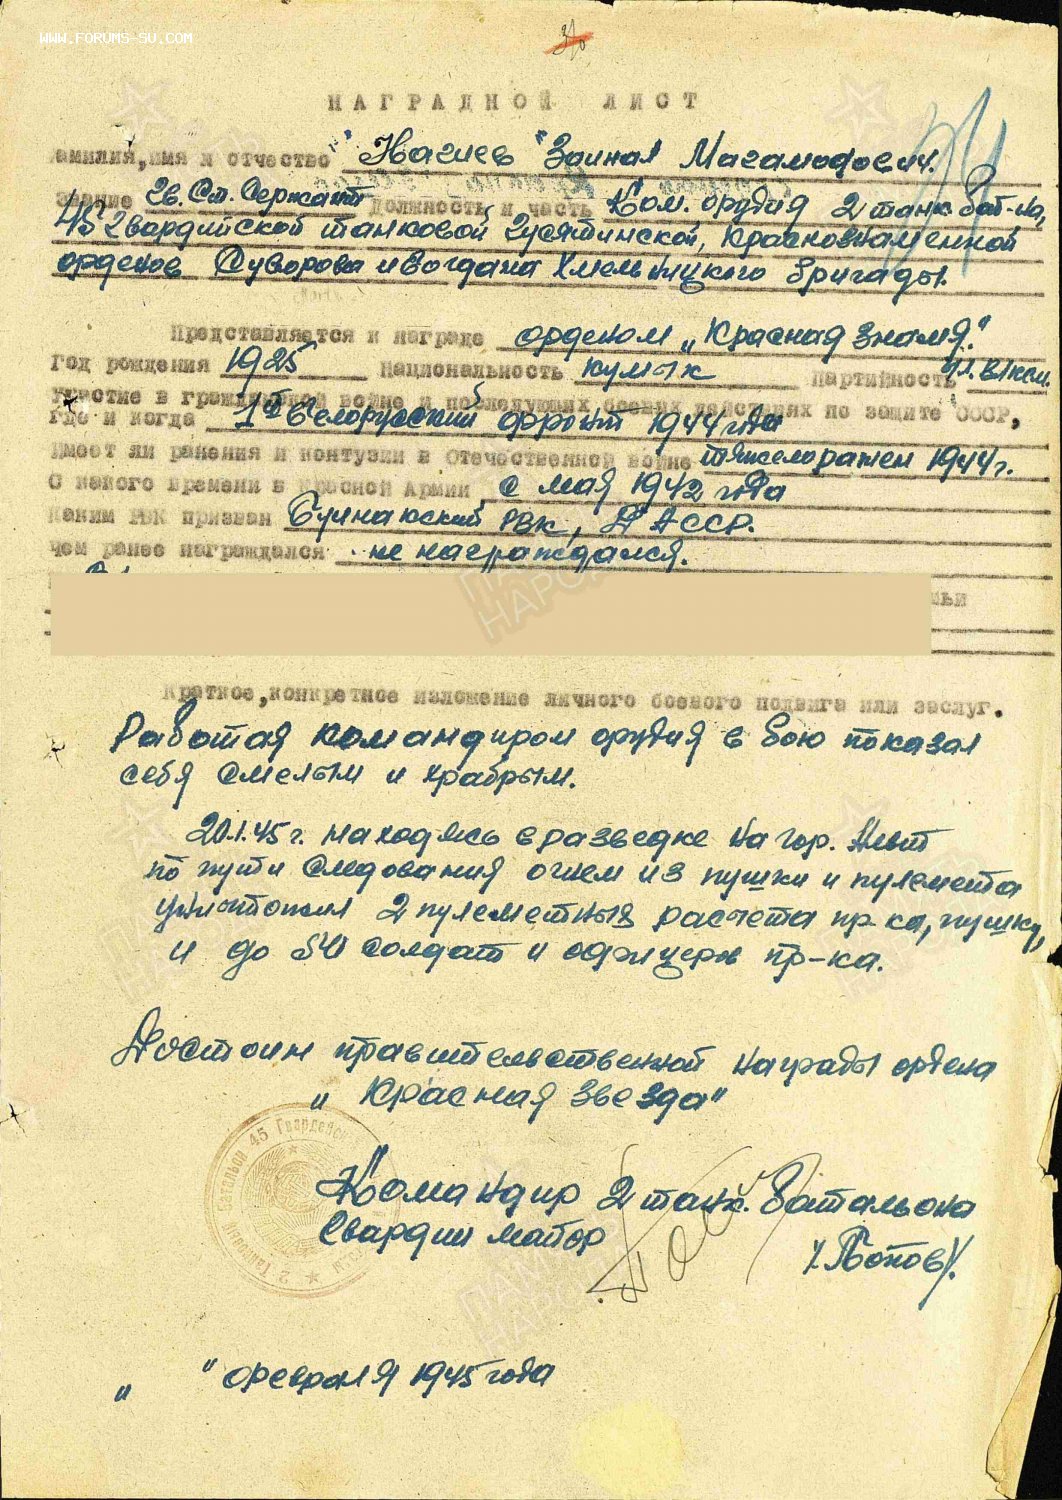 WWW.FORUMS-SU.COM
НАГРАДНОЙ ЛИСТ
амилия, имя и отчество "Нагиев" Заинал Магамодович.
Звание Гв. Ст. Сержант должность и часть Ком. орудия 2 танк. бат-на,
45 Гвардийской танковой Гусятинской, Краснознаменной
орденов Суворова и Богдана Хмельницкого бригады.
Представляется к награде орденом „Красная Знамя."
Год рождения 1925 Национальность кумык Партийность чл. ВЛКСМ.
Участие в гражданской войне и последующих боевых действиях по защите СССР,
где и когда 1й Белорусский фронт 1944 года
Имеет ли ранения и контузии в Отечественной войне тяжело ранен 1944 г.
С какого времени в Красной Армии с мая 1942 года
Каким РВК призван Буйнакский РВК, ДАССР.
чем ранее награждался не награждался.
Краткое, конкретное изложение личного боевого подвига или заслуг.
Работая командиром орудия в бою показал
себя смелым и храбрым.
20.1.45 г. находясь в разведке на гор.
по пути следования огнем из пушки и пулемета
уничтожил 2 пулеметных расчета пр-ка, пушку,
и до солдат и офицеров пр-ка.
Достоин правительственной награды ордена
„Красная звезда"
Командир 2 танк. батальона
Гвардии майор /Попов/.
" " февраля 1945 года